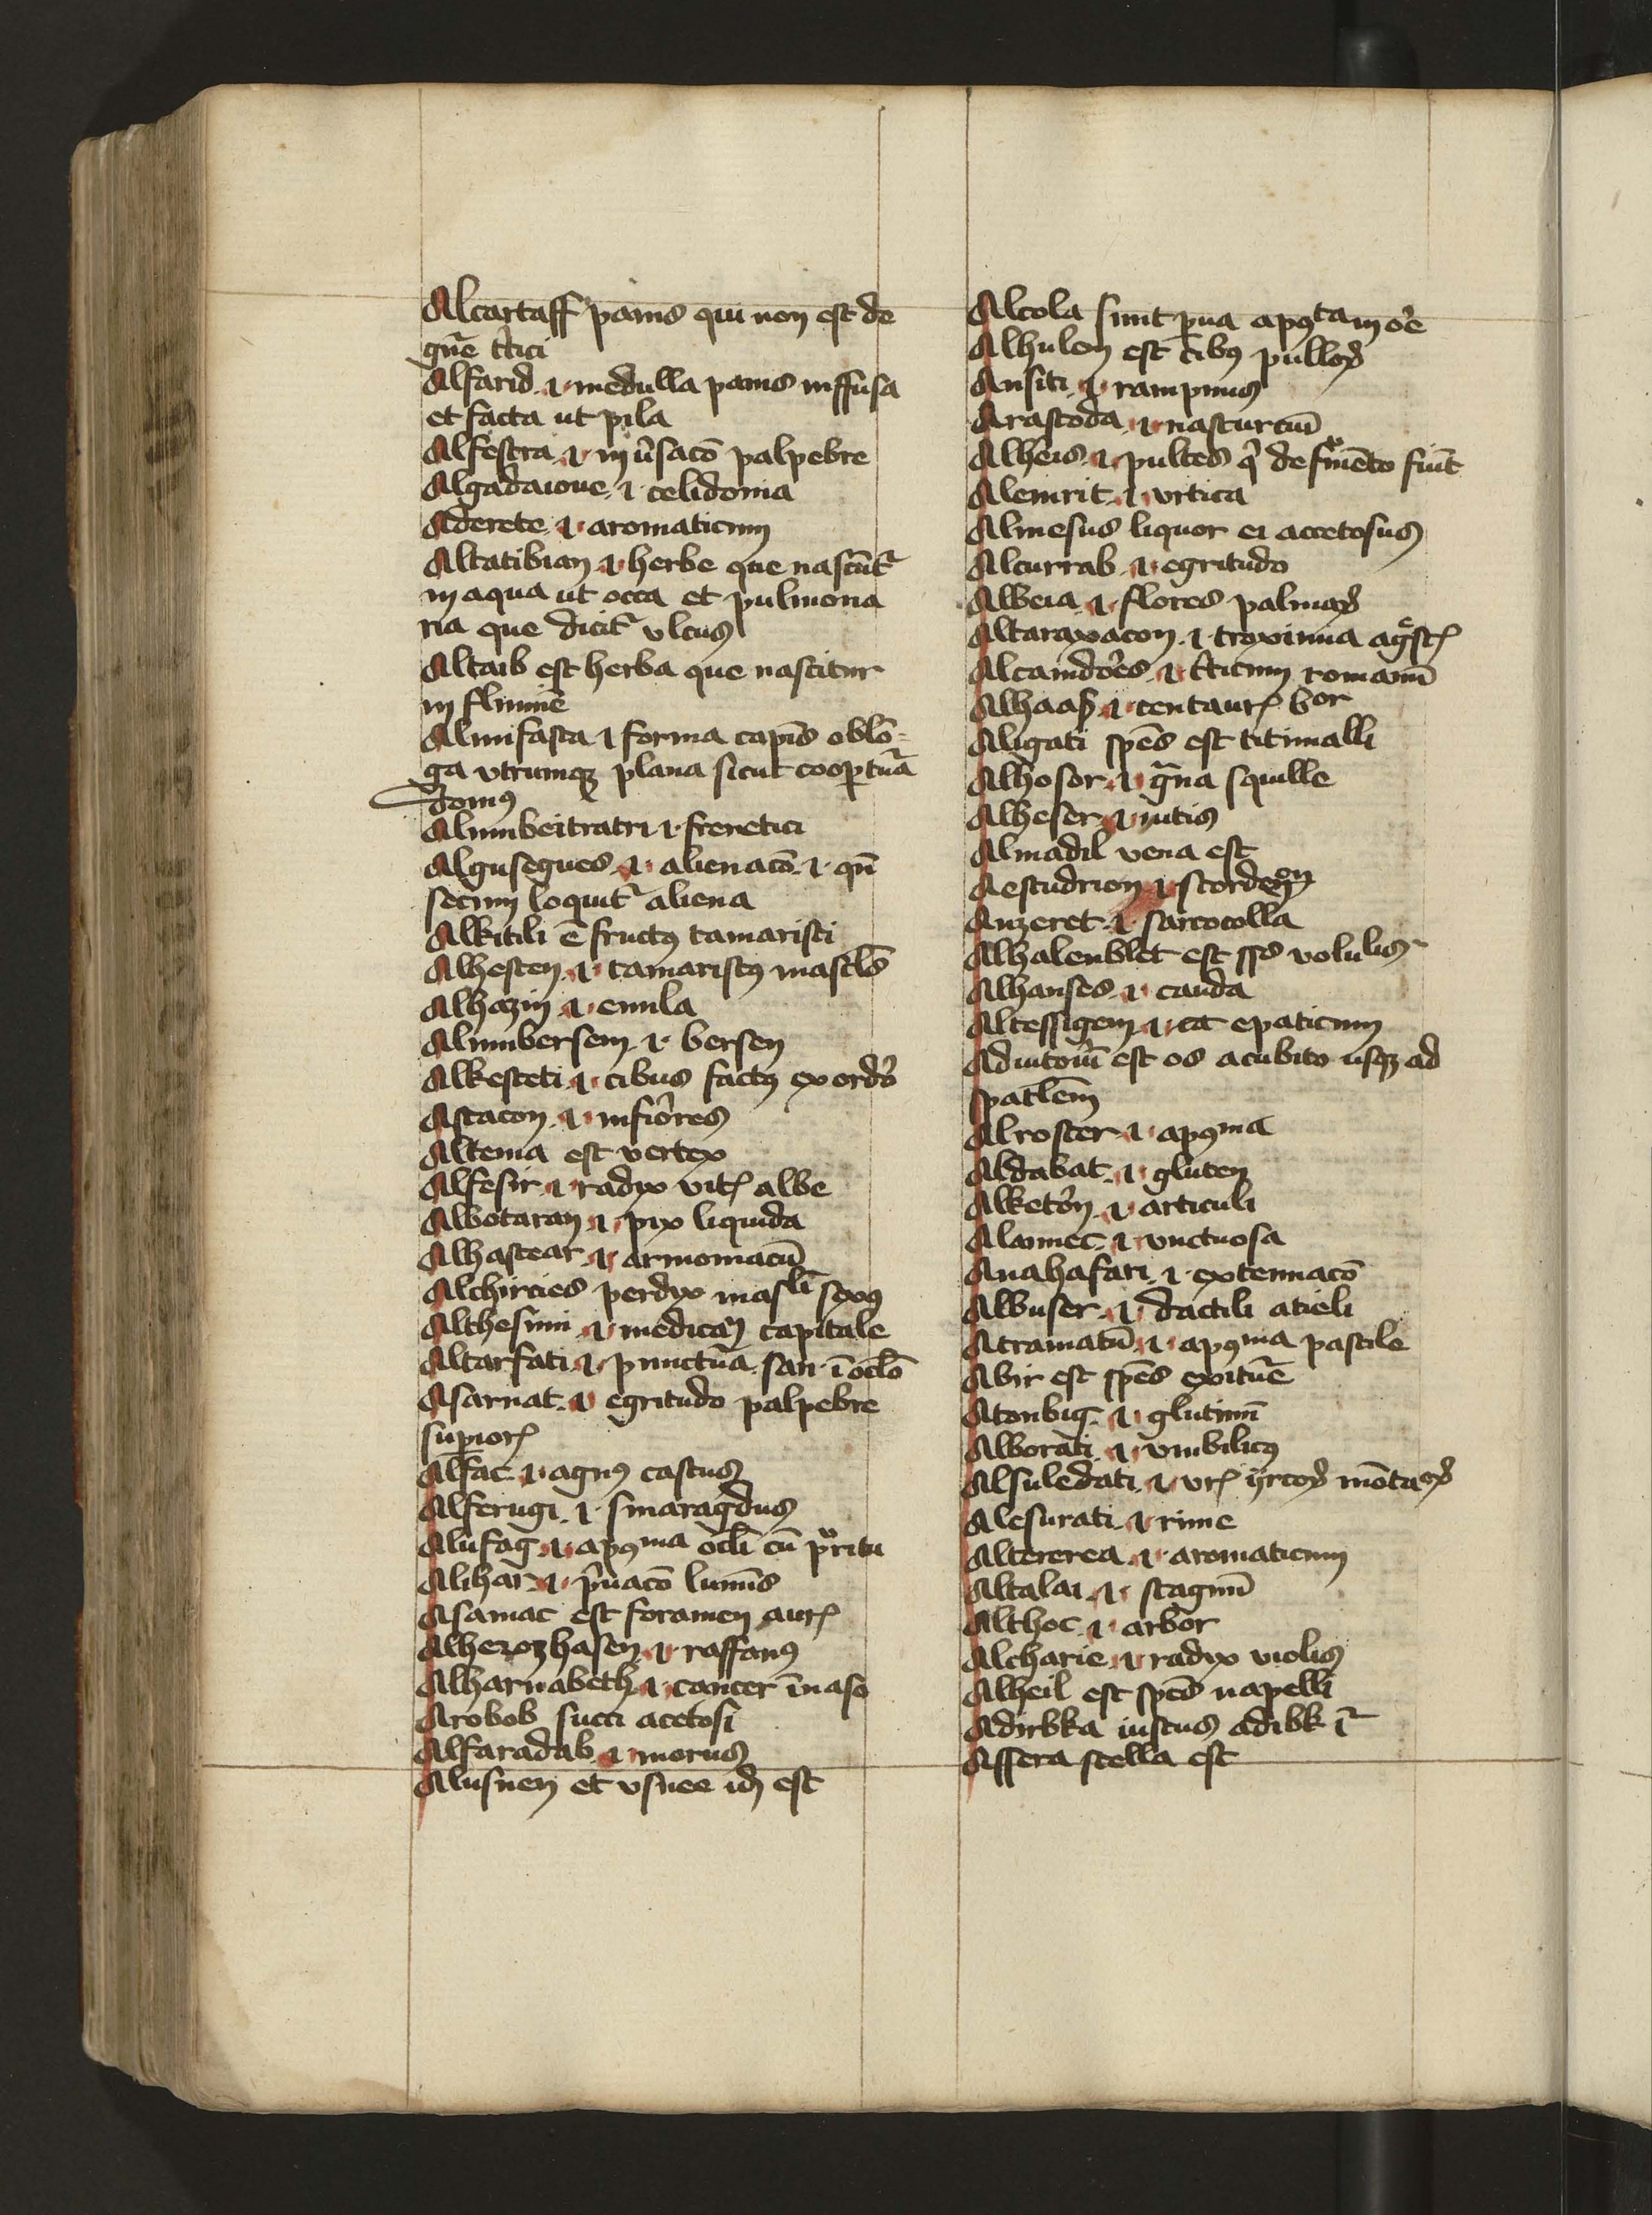 Alcartaff panis qui non est de
gn̄e t̄tici
Alfarid .i. medulla panis inffusa
et facta ut pila
Alfestra .i. in v̄sacō palpebre
Algadaione .i. celidonia
Aderete .i. aromaticum
Altatibian .i. herbe que nascūt᷑
in aqua ut occa et pulmona
ria que dicit᷑ vlcus
Altaib est herba que nascitur
in flumīe
Almifasta .i. forma capīs oblō-
ga vtrumqꝫ plana sicut cooꝑtūa
domꝰ
Alumbeitratri .i. frenetici
Algusegues .i. alienacō .i. qn̄
secum loquit᷑ aliena
Alkitili ē fructꝰ tamarisci
Alhesten .i. tamariscꝰ mascl̄s
Alhazin .i. enula
Alumbersem .i. bersen
Alkesteti .i. cibus factꝰ ex ord̄o
Astacon .i. infīores
Altenia est vertex
Alfesir .i. radix vitꝭ albe
Albotaran .i. pix liquida
Alhastear .i. armoniacū
Alchircies perdix masl̄i sexꝰ
Althesimi .i. medicaī capitale
Altarfati .i. punctūa san .ī ocl̄o
Asarnat .i. egritudo palpebre
suꝑiorꝭ
Alfac .i. agnꝰ castus
Alferugi .i. smaragdus
Alufag .i. apꝰma ocl̄i cū pͦritu
Alihar .i. p̄uacō lumīs
Asamac est foramen aurꝭ
Alherozhasen .i. raffanꝰ
Alharnabeth .i. cancer ī naso
Arobob succi acetosi
Alfaradab .i. morus
Alusnen et vsnee id̄ est
Alcola sunt ꝑua apꝰta in oꝛe
Alhulen est cibꝰ pulloꝝ
Ansiti .i. rampinus
Arastoda .i. nasturciū
Alheis .i. pultes q̄ de fͦmēto fiūt
Alemrit .i. vrtica
Almesus liquor ei accetosus
Alcurrab .i. egritudo
Albeia .i. flores palmaꝝ
Altaraxacon .i. troximia agͤstꝭ
Alcamdoes .i. t̄ticum romanū
Alhaaß .i. centaurꝭ bor
Aligati spēs est titimalli
Alhosor .i. gᷓna squille
Alheser .i. uitis
Almadil vena est
Aestudrion .i. scordeon
Anzeret .i. sarcocolla
Alhalenblet est sꝑs volulis
Alhanses .i. cauda
Altessigem .i. ca epaticum
Adiutoiū est os a cubito usqꝫ ad
spatlem
Alroster .i. apꝰma
Aldabat .i. gluten
Alketōn .i. articuli
Alaimec .i. vnctuosa
Anahafari .i. extenuacō
Albuser .i. dactili atieli
Atramatū .i. apꝰma pastile
Abir est spēs exitūe
Atonbig .i. glutinū
Alborati .i. vmbilicꝰ
Alsuledati .i. vrꝭ yrcoꝝ mōtaoꝝ
Alesurati .i. rime
Altererea .i. aromaticum
Altalai .i. stagnū
Althoc .i. arbor
Alcharie .i. radix violis
Alheil est spēs napelli
Adirbka iustus adibk ī᷑
Assera stella est